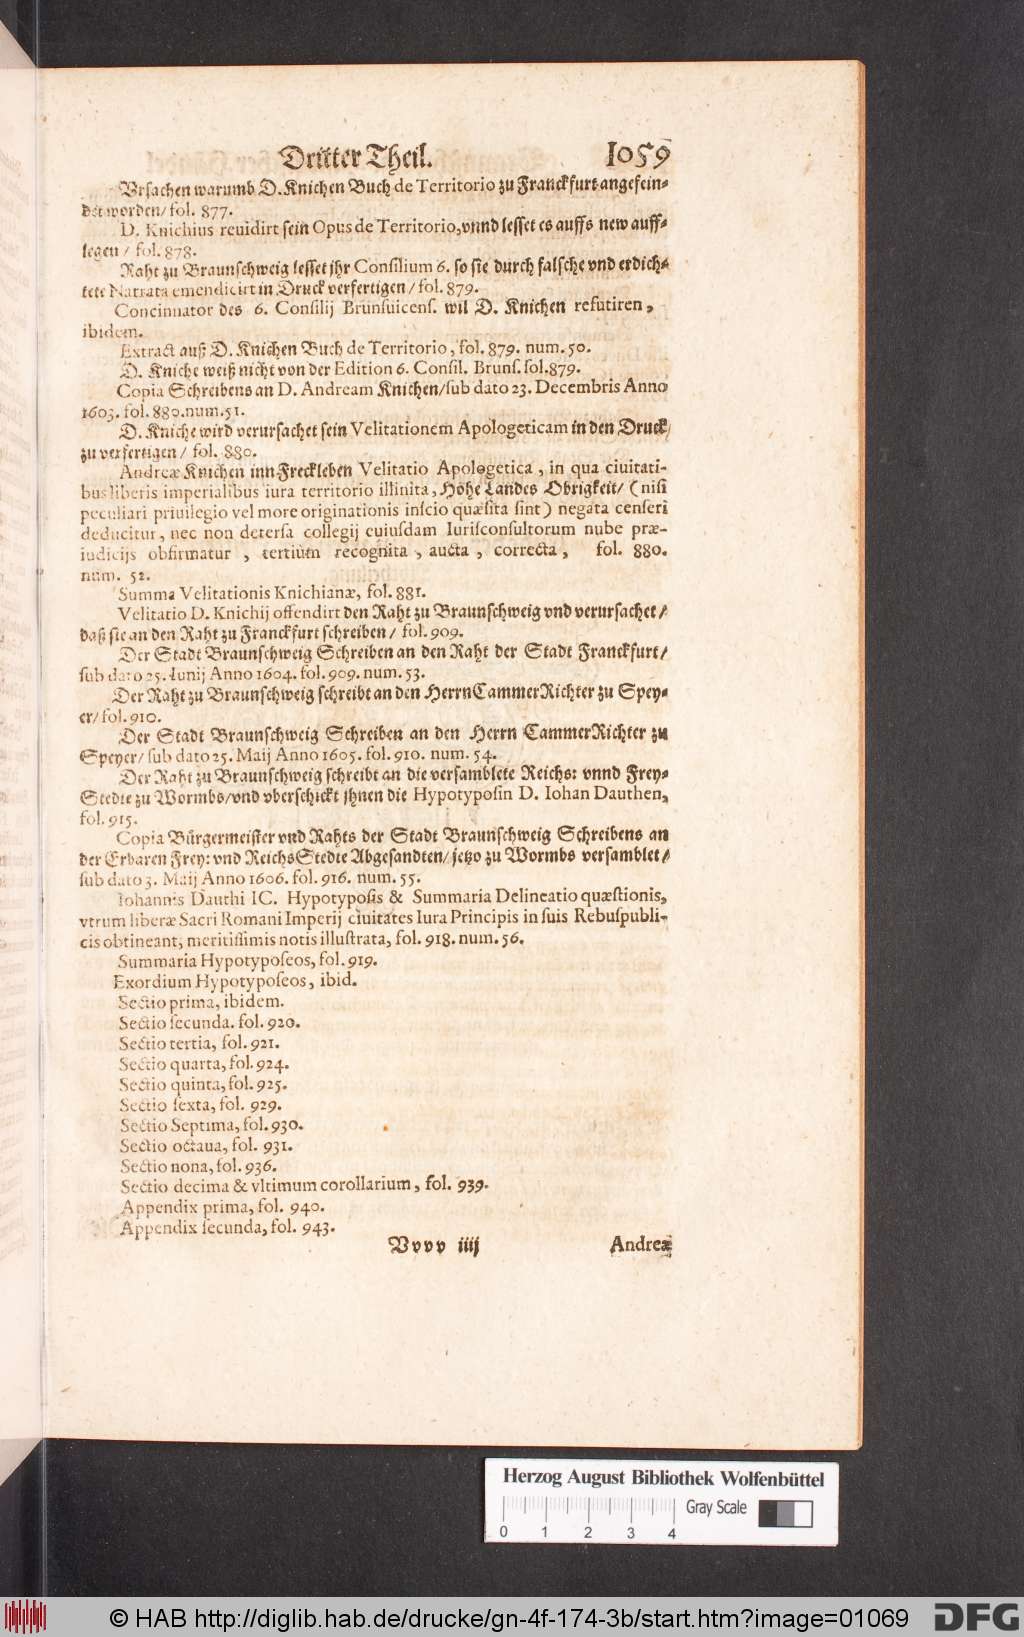 Dritter Theil. 1059
Vrſachen warumb D. Knichen Buch de Territorio zu Franckfurt angefein-
det worden/ fol. 877.
D. Knichius reuidirt ſein Opus de Territorio, vnnd leſſet es auffs new auff-
legen / fol. 878.
Raht zu Braunſchweig leſſet jhr Conſilium 6. ſo ſie durch falſche vnd erdich-
tete Narrata emendicirt in Druck verfertigen / fol. 879.
Concinnator des 6. Conſilij Brunſuicenſ. wil D. Knichen refutiren,
ibidem.
Extract auß D. Knichen Buch de Territorio, fol. 879. num. 50.
D. Kniche weiß nicht von der Edition 6. Conſil. Brunſ. fol. 879.
Copia Schreibens an D. Andream Knichen/ ſub dato 23. Decembris Anno
1603. fol. 880. num. 51.
D. Kniche wird verurſachet ſein Velitationem Apologeticam in den Druck/
zu verfertigen / fol. 880.
Andreæ Knichen inn Freckleben Velitatio Apologetica, in qua ciuitati-
bus liberis imperialibus iura territorio illinita, Hohe Landes Obrigkeit/ (niſi
peculiari priuilegio vel more originationis inſcio quæſita ſint) negata cenſeri
deducitur, nec non deterſa collegij cuiuſdam Iuriſconſultorum nube præ-
iudicijs obfirmatur, tertiùm recognita, aucta, correcta, fol. 880.
num. 52.
Summa Velitationis Knichianæ, fol. 881.
Velitatio D. Knichij offendirt den Raht zu Braunſchweig vnd verurſachet/
daß ſie an den Raht zu Franckfurt ſchreiben / fol. 909.
Der Stadt Braunſchweig Schreiben an den Raht der Stadt Franckfurt/
ſub dato 25. Iunij Anno 1604. fol. 909. num. 53.
Der Raht zu Braunſchweig ſchreibt an den Herrn CammerRichter zu Spey-
er/ fol. 910.
Der Stadt Braunſchweig Schreiben an den Herrn CammerRichter zu
Speyer/ ſub dato 25. Maij Anno 1605. fol. 910. num. 54.
Der Raht zu Braunſchweig ſchreibt an die verſamblete Reichs: vnnd Frey-
Stedte zu Wormbs/ vnd vberſchickt jhnen die Hypotypoſin D. Iohan Dauthen,
fol. 915.
Copia Bürgermeiſter vnd Rahts der Stadt Braunſchweig Schreibens an
der Erbaren Frey: vnd ReichsStedte Abgeſandten/ jetzo zu Wormbs verſamblet/
ſub dato 3. Maij Anno 1606. fol. 916. num. 55.
Iohannis Dauthi IC. Hypotypoſis & Summaria Delineatio quæſtionis,
vtrum liberæ Sacri Romani Imperij ciuitates Iura Principis in ſuis Rebuſpubli-
cis obtineant, meritiſſimis notis illuſtrata, fol. 918. num. 56.
Summaria Hypotypoſeos, fol. 919.
Exordium Hypotypoſeos, ibid.
Sectio prima, ibidem.
Sectio ſecunda. fol. 920.
Sectio tertia, fol. 921.
Sectio quarta, fol. 924.
Sectio quinta, fol. 925.
Sectio ſexta, fol. 929.
Sectio Septima, fol. 930.
Sectio octaua, fol. 931.
Sectio nona, fol. 936.
Sectio decima & vltimum corollarium, fol. 939.
Appendix prima, fol. 940.
Appendix ſecunda, fol. 943.
Vvvv iiij Andreæ
Herzog August Bibliothek Wolfenbüttel
Gray Scale
0 1 2 3 4
© HAB http://diglib.hab.de/drucke/gn-4f-174-3b/start.htm?image=01069 DFG